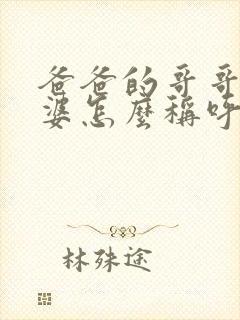 爸爸的哥哥
婆怎麼稱呼
林殊途